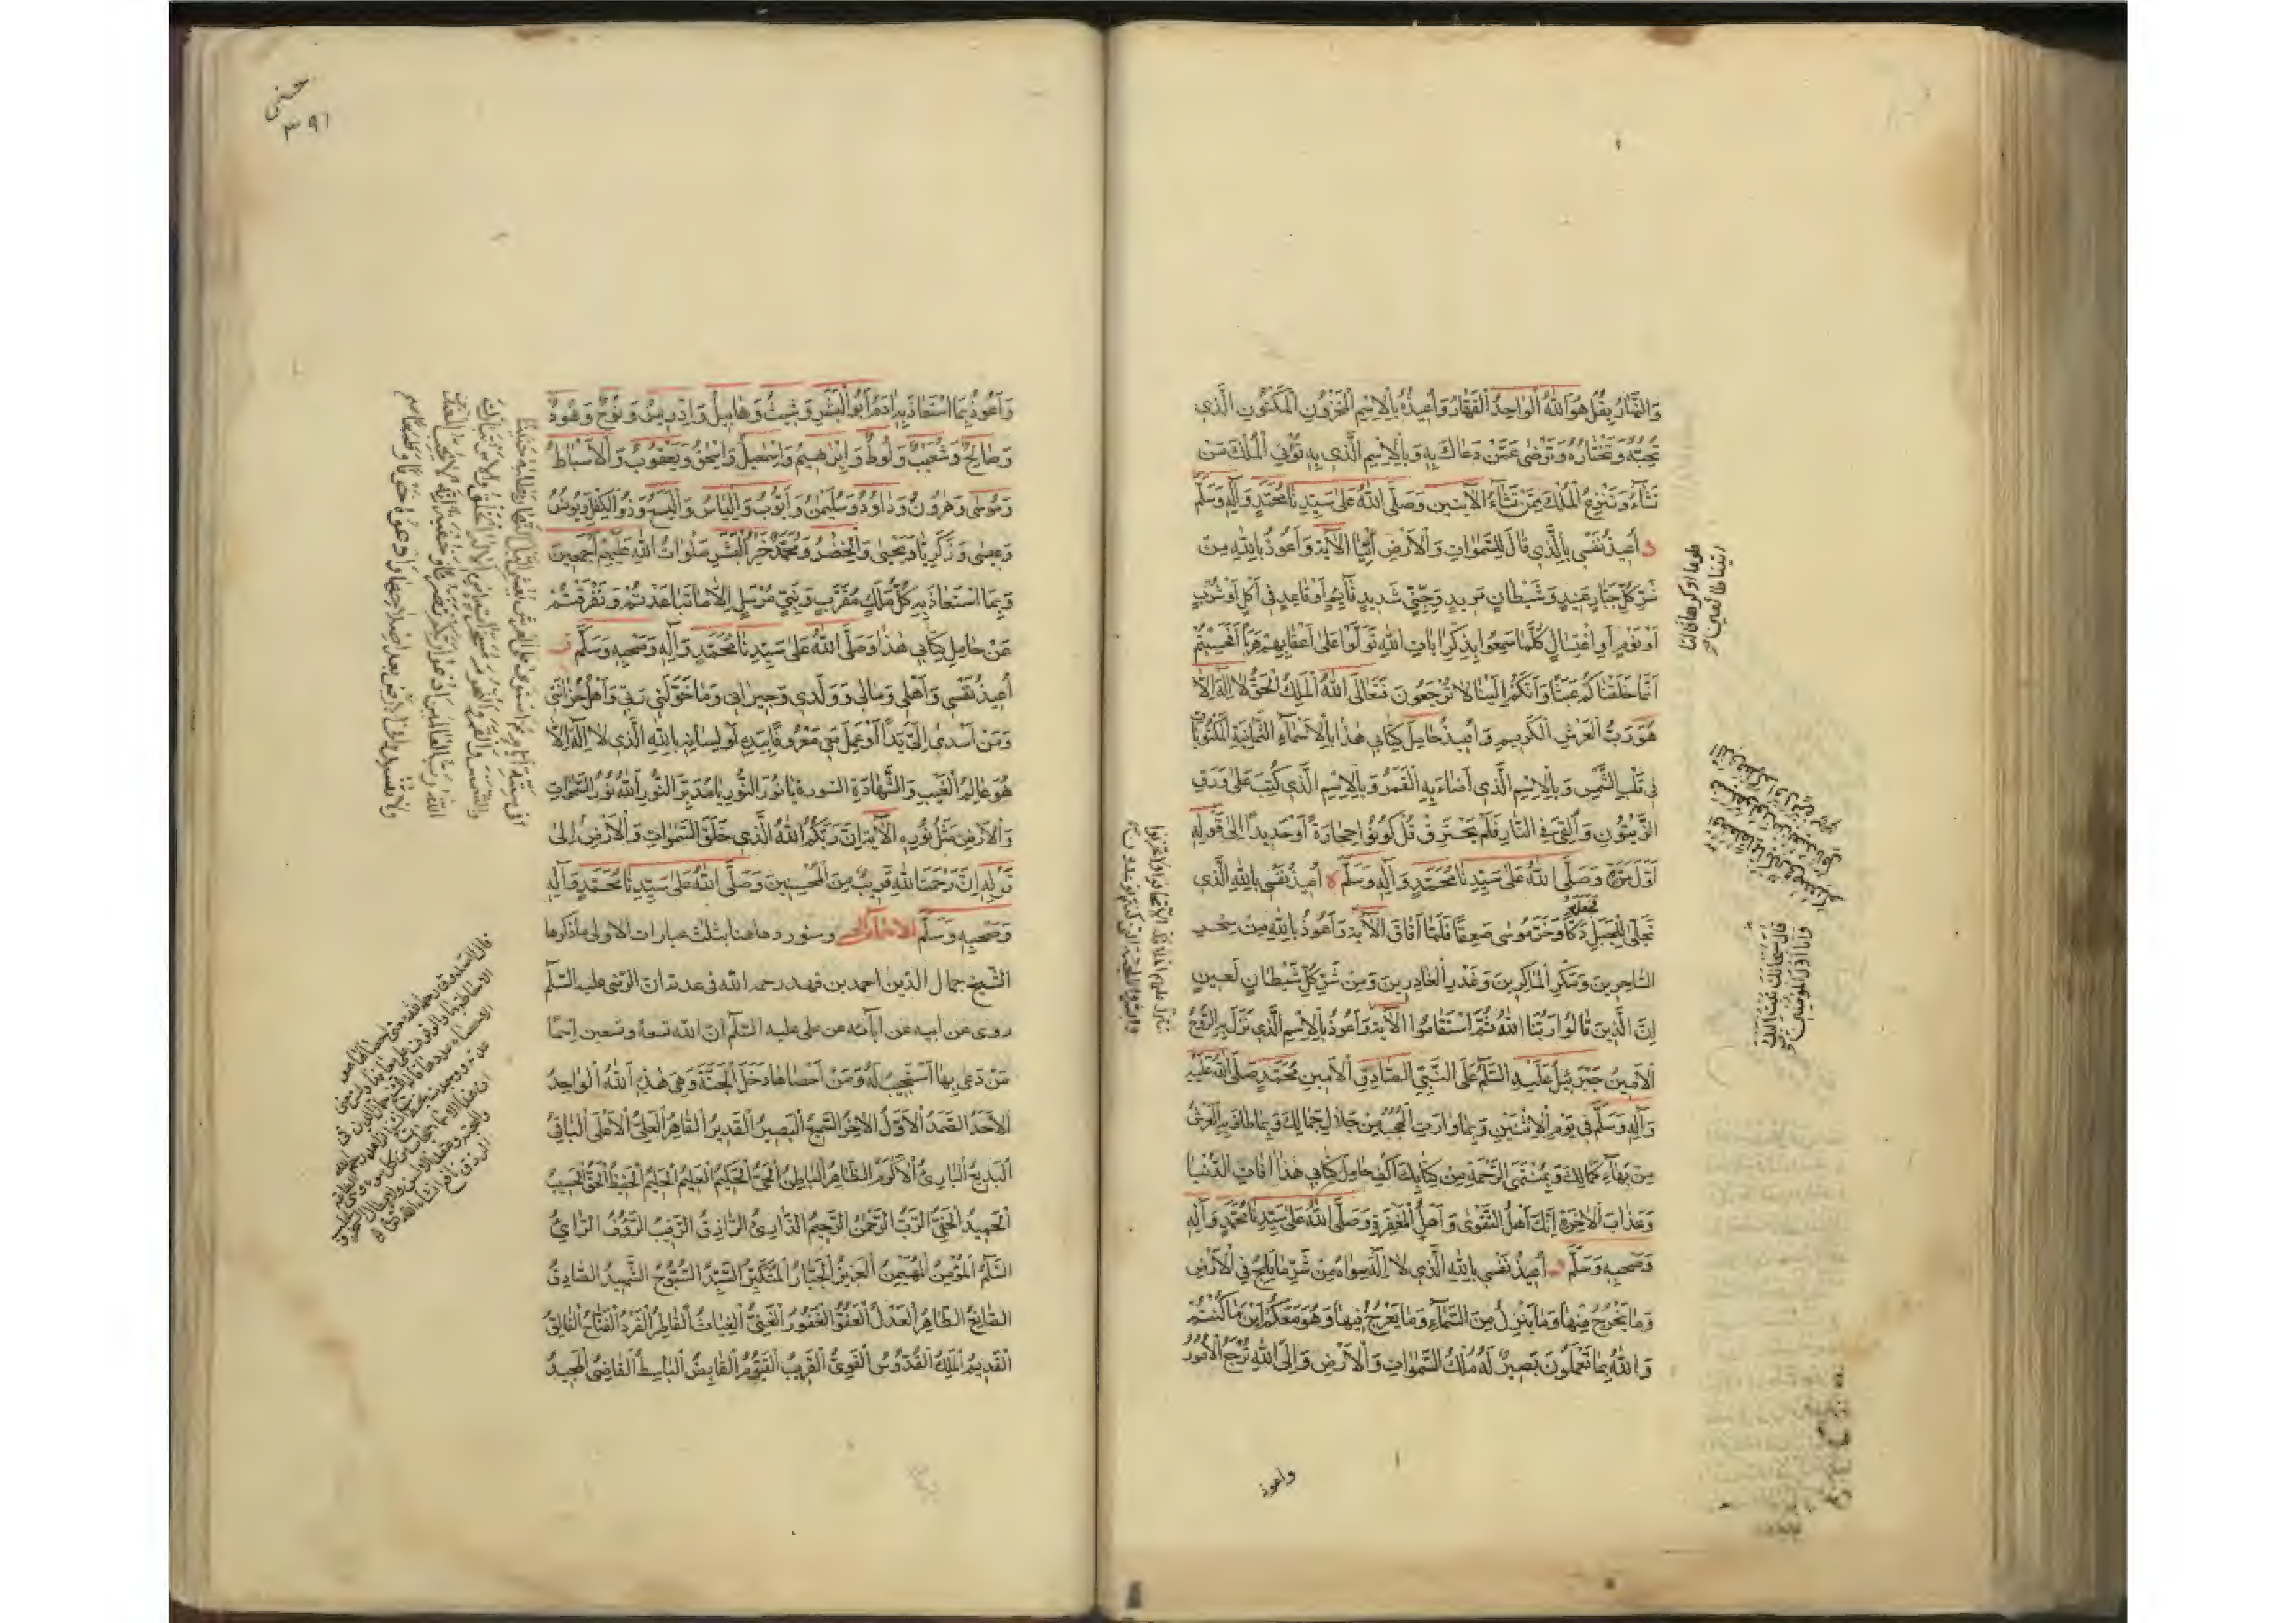 وَالنَّهَارُ بِقُلْ هُوَ اللهُ الْوَاحِدُ الْقَهَّارُ وَاُعِيذُهُ بِالْاِسْمِ الْمَخْزُونِ الْمَكْنُونِ الَّذِي
تُحِبُّهُ وَتَخْتَارُهُ وَتَرْضَى عَمَّنْ دَعَاكَ بِهِ وَبِالْاِسْمِ الَّذِي بِهِ تُؤْتِي الْمُلْكَ مَنْ
تَشَاءُ وَتَنْزِعُ الْمُلْكَ مِمَّنْ تَشَاءُ الْآيَتَيْنِ وَصَلَّى اللهُ عَلَى سَيِّدِنَا مُحَمَّدٍ وَآلِهِ وَسَلَّمَ
د اُعِيذُ نَفْسِي بِالَّذِي قَالَ لِلسَّمٰوَاتِ وَالْاَرْضِ ائْتِيَا الْآيَةَ وَاَعُوذُ بِاللهِ مِنْ
شَرِّ كُلِّ جَبَّارٍ عَنِيدٍ وَشَيْطَانٍ مَرِيدٍ وَجِنِّيٍّ شَدِيدٍ قَائِمٍ اَوْ قَاعِدٍ فِي اَكْلٍ اَوْ شُرْبٍ
اَوْ نَوْمٍ اَوِ اغْتِسَالٍ كُلَّمَا سَمِعُوا بِذِكْرِ اٰيَاتِ اللهِ تَوَلَّوْا عَلَى اَعْقَابِهِمْ هَرَبًا اَفَحَسِبْتُمْ
اَنَّمَا خَلَقْنَاكُمْ عَبَثًا وَاَنَّكُمْ اِلَيْنَا لَا تُرْجَعُونَ فَتَعَالَى اللهُ الْمَلِكُ الْحَقُّ لَا اِلٰهَ اِلَّا
هُوَ رَبُّ الْعَرْشِ الْكَرِيمِ وَاُعِيذُ حَامِلَ كِتَابِي هٰذَا بِالْاَسْمَاءِ الثَّمَانِيَةِ الْمَكْتُوبَةِ
فِي قَلْبِ الشَّمْسِ وَبِالْاِسْمِ الَّذِي اَضَاءَ بِهِ الْقَمَرُ وَبِالْاِسْمِ الَّذِي كُتِبَ عَلَى وَرَقِ
الزَّيْتُونِ وَاُلْقِيَ فِي النَّارِ فَلَمْ يَحْتَرِقْ قُلْ كُونُوا حِجَارَةً اَوْ حَدِيدًا اِلَى قَوْلِهِ
اَوَّلَ مَرَّةٍ وَصَلَّى اللهُ عَلَى سَيِّدِنَا مُحَمَّدٍ وَآلِهِ وَسَلَّمَ ه اُعِيذُ نَفْسِي بِاللهِ الَّذِي
تَجَلَّى لِلْجَبَلِ فجعله دَكًّا وَخَرَّ مُوسَى صَعِقًا فَلَمَّا اَفَاقَ الْآيَةَ وَاَعُوذُ بِاللهِ مِنْ سِحْرِ
السَّاحِرِينَ وَمَكْرِ الْمَاكِرِينَ وَغَدْرِ الْغَادِرِينَ وَمِنْ شَرِّ كُلِّ شَيْطَانٍ لَعِينٍ
اِنَّ الَّذِينَ قَالُوا رَبُّنَا اللهُ ثُمَّ اسْتَقَامُوا الْآيَةَ وَاَعُوذُ بِالْاِسْمِ الَّذِي نَزَلَ بِهِ الرُّوحُ
الْاَمِينُ جَبْرَئِيلُ عَلَيْهِ السَّلَامُ عَلَى النَّبِيِّ الصَّادِقِ الْاَمِينِ مُحَمَّدٍ صَلَّى اللهُ عَلَيْهِ
وَآلِهِ وَسَلَّمَ فِي يَوْمِ الْاِثْنَيْنِ وَبِمَا وَارَتِ الْحُجُبُ مِنْ جَلَالِ جَمَالِكَ وَبِمَا طَافَ بِهِ الْعَرْشُ
مِنْ بَهَاءِ كَمَالِكَ وَبِمُنْتَهَى الرَّحْمَةِ مِنْ كِتَابِكَ اكْفِ حَامِلَ كِتَابِي هٰذَا اٰفَاتِ الدُّنْيَا
وَعَذَابَ الْاٰخِرَةِ اِنَّكَ اَهْلُ التَّقْوَى وَاَهْلُ الْمَغْفِرَةِ وَصَلَّى اللهُ عَلَى سَيِّدِنَا مُحَمَّدٍ وَآلِهِ
وَصَحْبِهِ وَسَلَّمَ اُعِيذُ نَفْسِي بِاللهِ الَّذِي لَا اِلٰهَ سِوَاهُ مِنْ شَرِّ مَا يَلِجُ فِي الْاَرْضِ
وَمَا يَخْرُجُ مِنْهَا وَمَا يَنْزِلُ مِنَ السَّمَاءِ وَمَا يَعْرُجُ فِيهَا وَهُوَ مَعَكُمْ اَيْنَ مَا كُنْتُمْ
وَاللهُ بِمَا تَعْمَلُونَ بَصِيرٌ لَهُ مُلْكُ السَّمٰوَاتِ وَالْاَرْضِ وَاِلَى اللهِ تُرْجَعُ الْاُمُورُ
واعوذ
طوعا او كرها قالتا
اتينا طائعين
قال سبحانك تبت اليك
وانا اول المؤمنين
حسنى
٣٩١
وَاَعُوذُ بِمَا اسْتَعَاذَ بِهِ اٰدَمُ اَبُو الْبَشَرِ وَشِيثُ وَهَابِيلُ وَاِدْرِيسُ وَنُوحٌ وَهُودٌ
وَصَالِحٌ وَشُعَيْبٌ وَلُوطٌ وَاِبْرٰهِيمُ وَاِسْمٰعِيلُ وَاِسْحٰقُ وَيَعْقُوبُ وَالْاَسْبَاطُ
وَمُوسَى وَهٰرُونُ وَدَاوُدُ وَسُلَيْمٰنُ وَاَيُّوبُ وَاِلْيَاسُ وَالْيَسَعُ وَذُو الْكِفْلِ وَيُونُسُ
وَعِيسَى وَزَكَرِيَّا وَيَحْيَى وَالْخِضْرُ وَمُحَمَّدٌ خَيْرُ الْبَشَرِ صَلَوَاتُ اللهِ عَلَيْهِمْ اَجْمَعِينَ
وَبِمَا اسْتَعَاذَ بِهِ كُلُّ مَلَكٍ مُقَرَّبٍ وَنَبِيٍّ مُرْسَلٍ اِلَّا مَا تَبَاعَدْتُمْ وَتَفَرَّقْتُمْ
عَنْ حَامِلِ كِتَابِي هٰذَا وَصَلَّى اللهُ عَلَى سَيِّدِنَا مُحَمَّدٍ وَآلِهِ وَصَحْبِهِ وَسَلَّمَ
اُعِيذُ نَفْسِي وَاَهْلِي وَمَالِي وَوَلَدِي وَجِيرَانِي وَمَا خَوَّلَنِي رَبِّي وَاَهْلَ حُزَانَتِي
وَمَنْ اَسْدَى اِلَيَّ يَدًا اَوْ عَمِلَ مَعِي مَعْرُوفًا بِيَدِهِ اَوْ لِسَانِهِ بِاللهِ الَّذِي لَا اِلٰهَ اِلَّا
هُوَ عَالِمُ الْغَيْبِ وَالشَّهَادَةِ السورة يَا نُورَ النُّورِ يَا مُدَبِّرَ النُّورِ اَللهُ نُورُ السَّمٰوَاتِ
وَالْاَرْضِ مَثَلُ نُورِهِ الْآيَةَ اِنَّ رَبَّكُمُ اللهُ الَّذِي خَلَقَ السَّمٰوَاتِ وَالْاَرْضَ اِلَى
قَوْلِهِ اِنَّ رَحْمَتَ اللهِ قَرِيبٌ مِنَ الْمُحْسِنِينَ وَصَلَّى اللهُ عَلَى سَيِّدِنَا مُحَمَّدٍ وَآلِهِ
وَصَحْبِهِ وَسَلَّمَ الاسماء الحسنى وسنوردها هنا بثلث عبارات الاولى ما ذكرها
الشيخ جمال الدين احمد بن فهد رحمه الله فى عدته ان الرضى عليه السلام
روى عن ابيه عن آبائه عن على عليه السلام ان الله تسعة وتسعين اسمًا
مَنْ دَعَى بِهَا اسْتُجِيبَ لَهُ وَمَنْ اَحْصَاهَا دَخَلَ الْجَنَّةَ وَهِيَ هٰذِهِ اَللهُ الْوَاحِدُ
الْاَحَدُ الصَّمَدُ الْاَوَّلُ الْاٰخِرُ السَّمِيعُ الْبَصِيرُ الْقَدِيرُ الْقَاهِرُ الْعَلِيُّ الْاَعْلَى الْبَاقِي
الْبَدِيعُ الْبَارِئُ الْاَكْرَمُ الظَّاهِرُ الْبَاطِنُ الْحَيُّ الْحَكِيمُ الْعَلِيمُ الْحَلِيمُ الْحَفِيظُ الْحَقُّ الْحَسِيبُ
الْحَمِيدُ الْحَفِيُّ الرَّبُّ الرَّحْمٰنُ الرَّحِيمُ الذَّارِئُ الرَّازِقُ الرَّقِيبُ الرَّؤُفُ الرَّائِي
السَّلَامُ الْمُؤْمِنُ الْمُهَيْمِنُ الْعَزِيزُ الْجَبَّارُ الْمُتَكَبِّرُ السَّيِّدُ السُّبُّوحُ الشَّهِيدُ الصَّادِقُ
الصَّانِعُ الطَّاهِرُ الْعَدْلُ الْعَفُوُّ الْغَفُورُ الْغَنِيُّ الْغِيَاثُ الْفَاطِرُ الْفَرْدُ الْفَتَّاحُ الْفَالِقُ
الْقَدِيمُ الْمَلِكُ الْقُدُّوسُ الْقَوِيُّ الْقَرِيبُ الْقَيُّومُ الْقَابِضُ الْبَاسِطُ الْقَاضِي الْمَجِيدُ